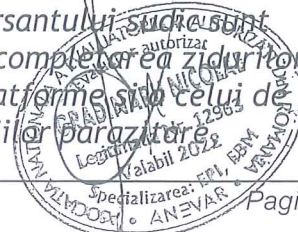 rsantului sudic sunt
completarea zidurilor
atforme si a celui de
iilor parazitare
Pagi
ASOCIATIA NATIONALA A EVALUATORILOR AUTORIZATI DIN ROMANIA
Evaluator autorizat
GRADINARU NICOLAE
Legitimatia 12963
Valabil 2022
Specializarea: EPI, EBM
ANEVAR